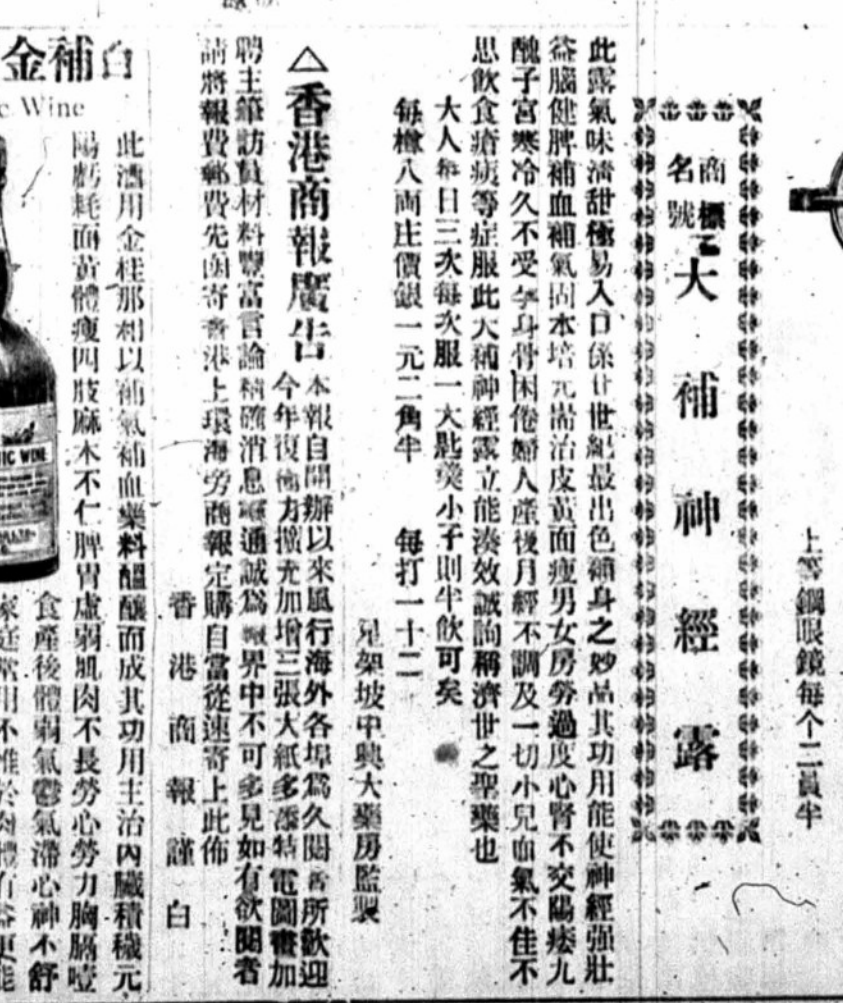 上等鋼眼鏡每个二員半
商標
名號
大補神經露
此露氣味清甜極易入口係廿世紀最出色補身之妙品其功用能使神經强壯
益腦健脾補血補氣固本培元耑治皮黃面瘦男女房勞過度心腎不交陽痿九
醜子宮寒冷久不受孕身骨困倦婦人產後月經不調及一切小兒血氣不佳不
思飲食瘡痍等症服此大補神經露立能湊效誠詢稱濟世之聖藥也
大人每日三次每次服一大匙羹小子則半飲可矣
每樽八両庄價銀一元二角半 每打一十二
星架坡中興大藥房監製
△香港商報廣告
本報自開辦以來風行海外各埠為久閱者所歡迎
今年復極力擴充加增三張大紙多添特電圖畫加
聘主筆訪員材料豐富言論精確消息靈通誠為報界中不可多見如有欲閱者
請將報費郵費先函寄香港上環海旁商報定購自當從速寄上此佈
香港商報謹白
白補金
c Wine
此酒用金桂那相以補氣補血藥料醞釀而成其功用主治內臟積穢元
陽虧耗面黃體瘦四肢麻木不仁脾胃虛弱肌肉不長勞心勞力胸膈噎
食產後體弱氣鬱氣滯心神不舒
家庭常用不惟於肉體有益更能
NIC WINE